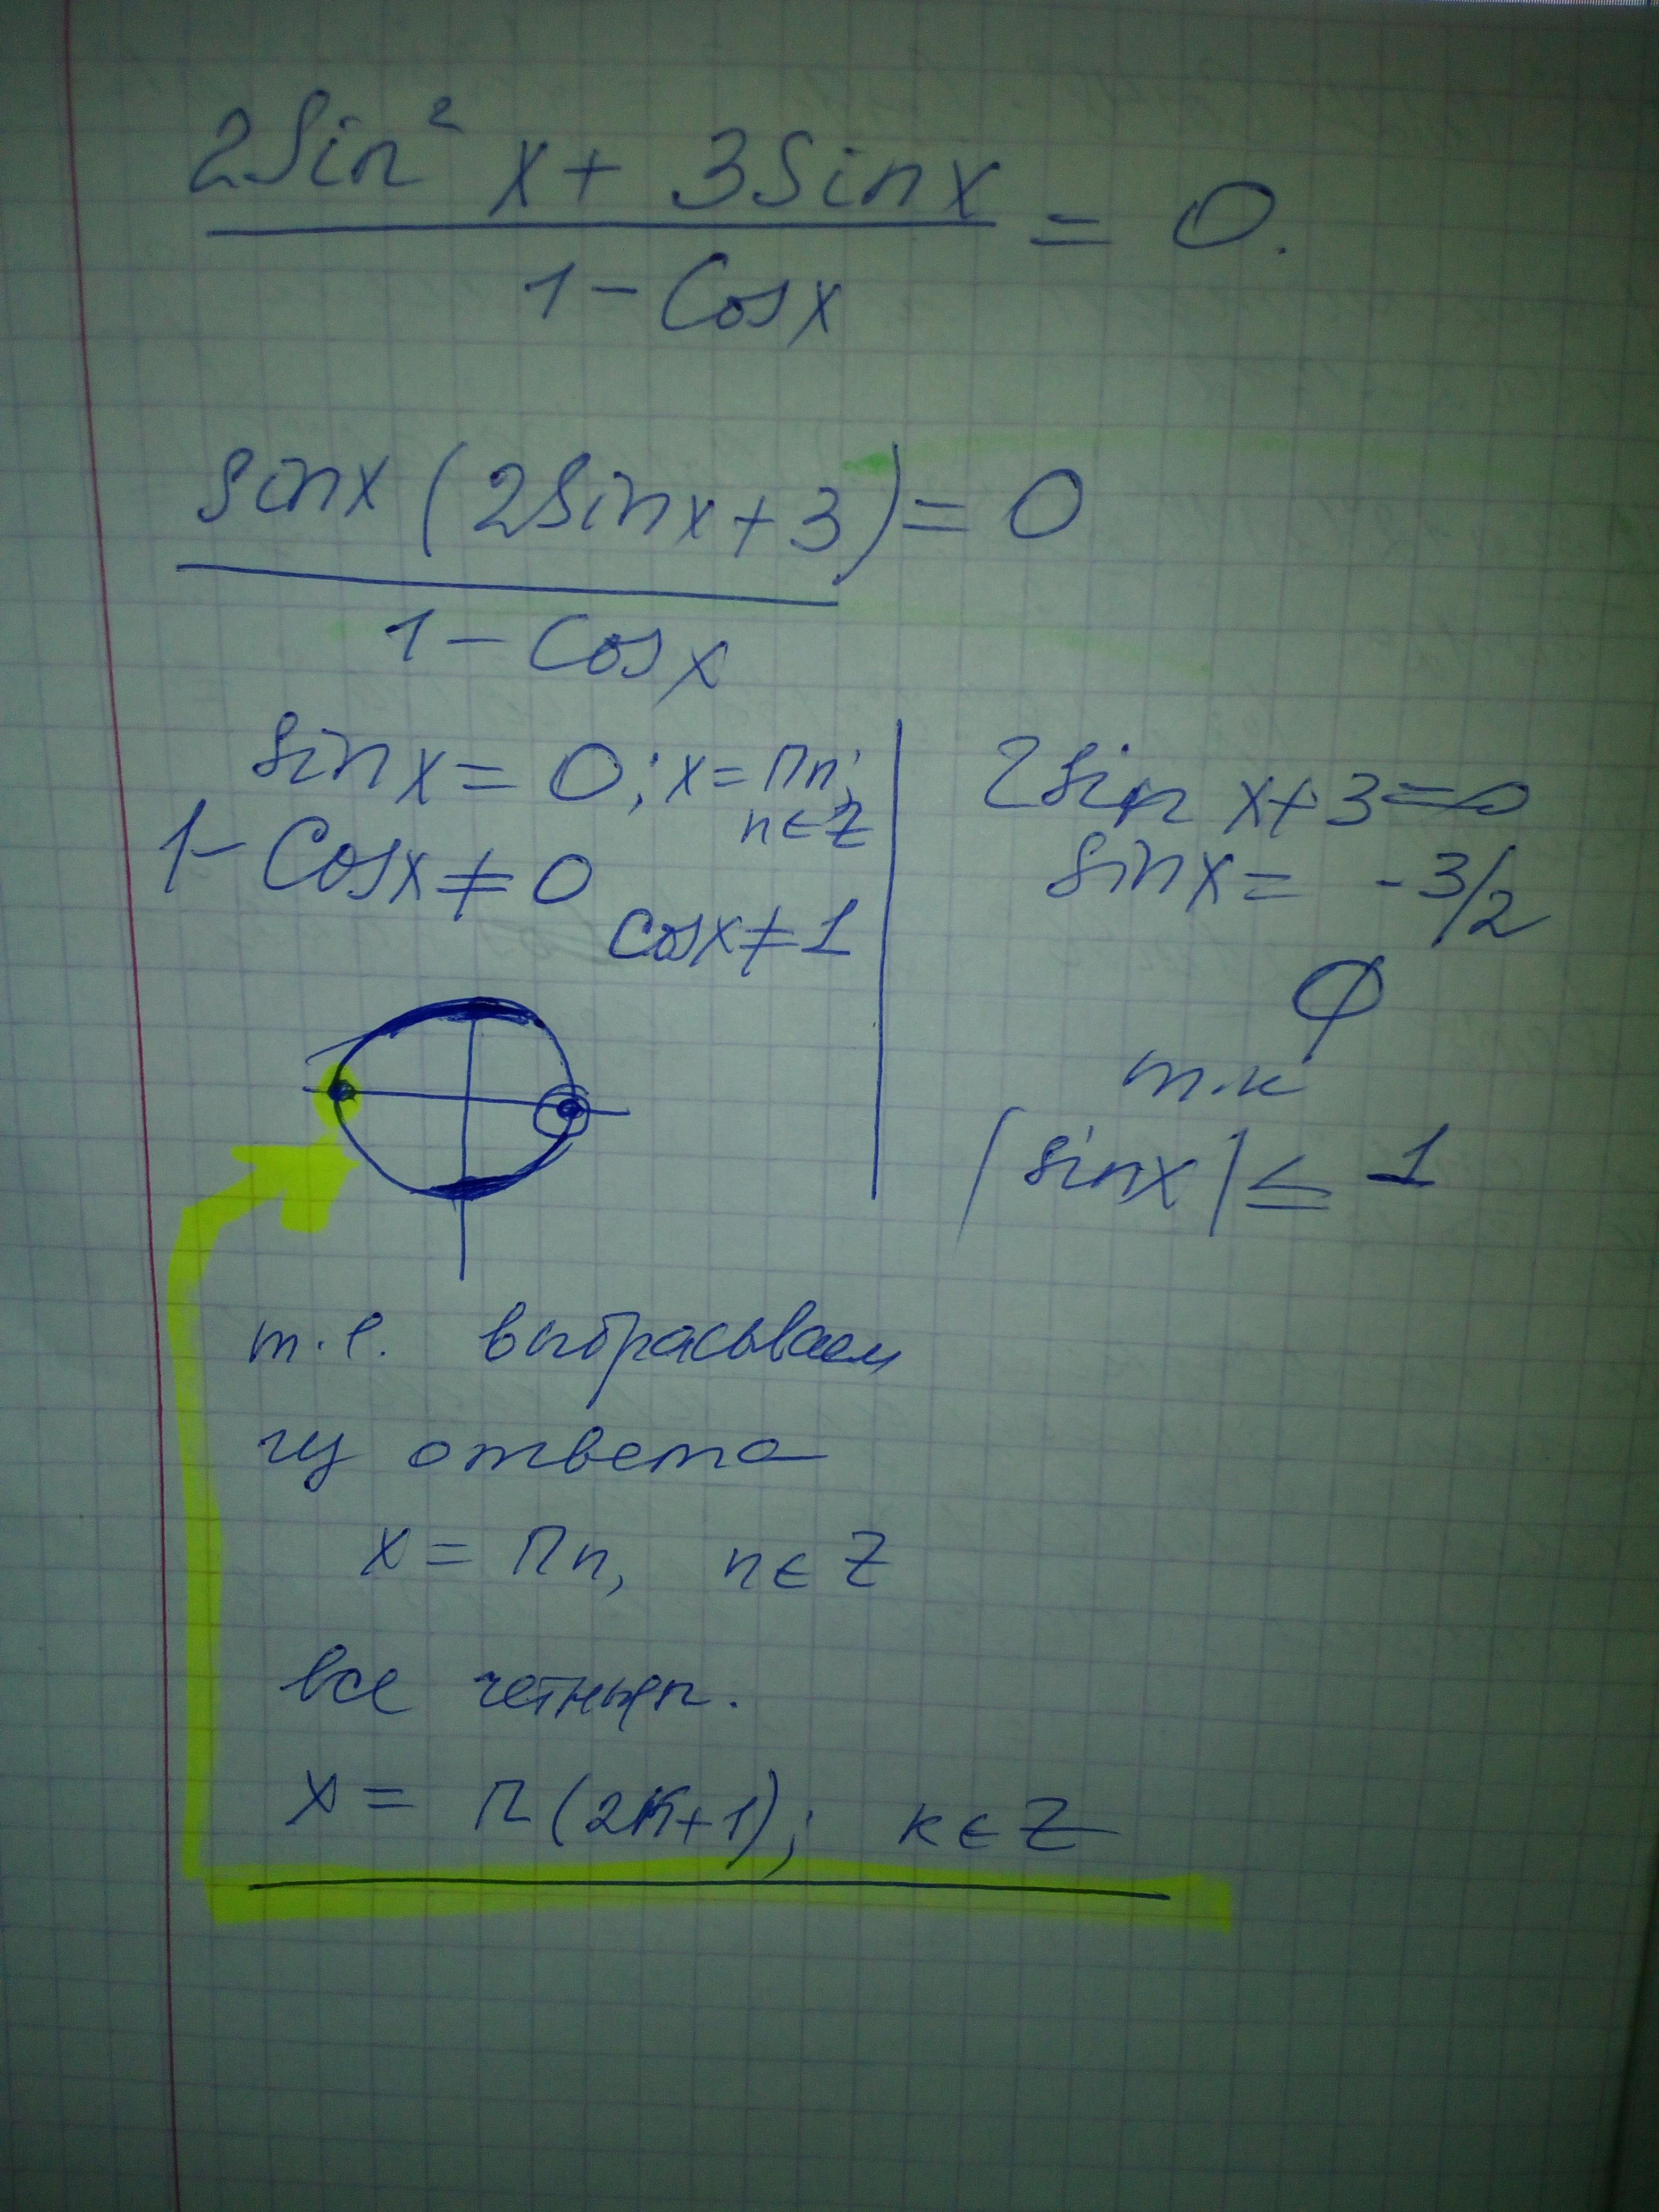 2Sin² x + 3Sinx
1 - Cosx
= 0.
sinx (2Sinx + 3) = 0
1 - Cosx
Sinx = 0; x = Пn;
n ∈ Z
1 - Cosx ≠ 0
cosx ≠ 1
2Sin x + 3 = 0
Sinx = - 3/2
∅
т.к
|sinx| ≤ 1
т.е. выбрасываем
из ответа
x = Пn, n ∈ Z
все четные n.
x = П(2к+1); к ∈ Z